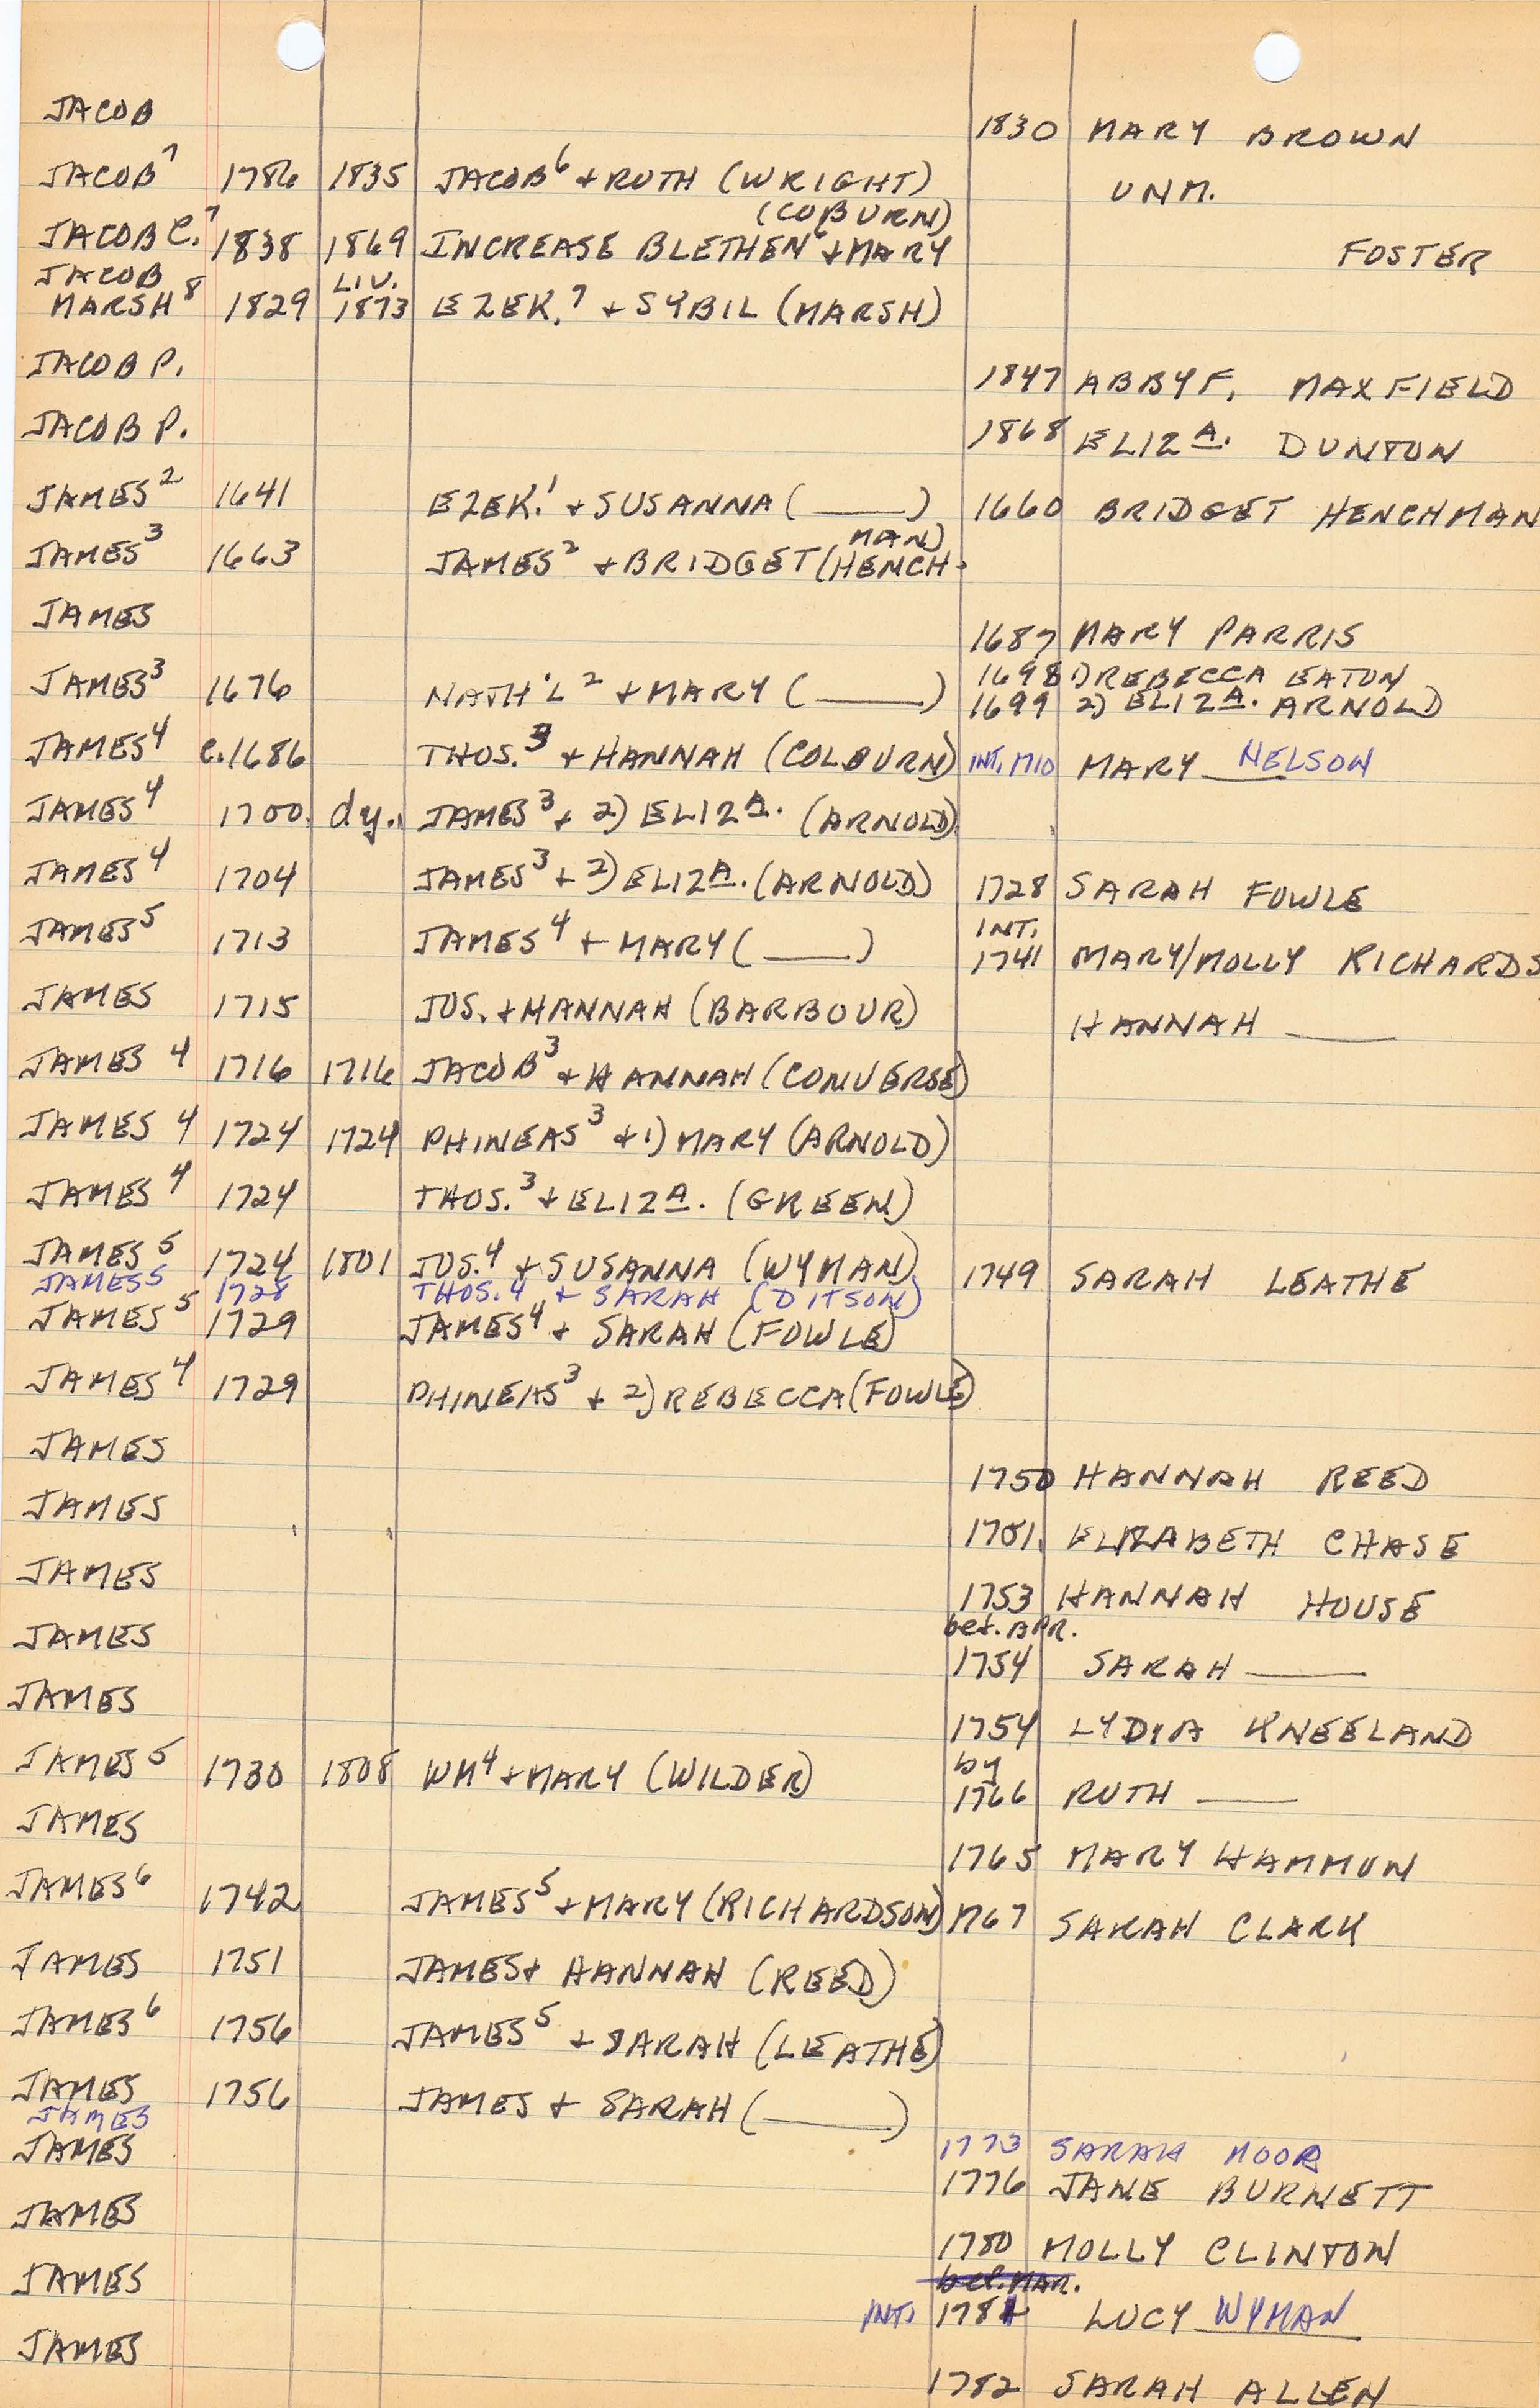 JACOB 1830 MARY BROWN
JACOB⁷ 1786 1835 JACOB⁶ + RUTH (WRIGHT) UNM.
(COBURN)
JACOB C.⁷ 1838 1869 INCREASE BLETHEN⁶ + MARY FOSTER
JACOB LIV.
MARSH⁸ 1829 1873 EZEK.⁷ + SYBIL (MARSH)
JACOB P. 1847 ABBY F. MAXFIELD
JACOB P. 1868 ELIZA. DUNTON
JAMES² 1641 EZEK.¹ + SUSANNA (____) 1660 BRIDGET HENCHMAN
MAN)
JAMES³ 1663 JAMES² + BRIDGET (HENCH-
JAMES 1687 MARY PARRIS
1698 1) REBECCA EATON
JAMES³ 1676 NATH'L² + MARY (____) 1699 2) ELIZA. ARNOLD
JAMES⁴ c.1686 THOS.³ + HANNAH (COLBURN) INT. 1710 MARY NELSON
JAMES⁴ 1700 dy. JAMES³ + 2) ELIZA. (ARNOLD)
JAMES⁴ 1704 JAMES³ + 2) ELIZA. (ARNOLD) 1728 SARAH FOWLE
INT.
JAMES⁵ 1713 JAMES⁴ + MARY (____) 1741 MARY/MOLLY RICHARDS
JAMES 1715 JOS. + HANNAH (BARBOUR) HANNAH ____
JAMES⁴ 1716 1716 JACOB³ + HANNAH (CONVERSE)
JAMES⁴ 1724 1724 PHINEAS³ + 1) MARY (ARNOLD)
JAMES⁴ 1724 THOS.³ + ELIZA. (GREEN)
JAMES⁵ 1724 1801 JOS.⁴ + SUSANNA (WYMAN) 1749 SARAH LEATHE
JAMES⁵ 1728 THOS.⁴ + SARAH (DITSON)
JAMES⁵ 1729 JAMES⁴ + SARAH (FOWLE)
JAMES⁴ 1729 PHINEAS³ + 2) REBECCA (FOWLE)
JAMES 1750 HANNAH REED
JAMES 1751 ELIZABETH CHASE
JAMES 1753 HANNAH HOUSE
bef. APR.
JAMES 1754 SARAH ____
JAMES 1754 LYDIA KNEELAND
by
JAMES⁵ 1730 1808 WM⁴ + MARY (WILDER) 1766 RUTH ____
JAMES 1765 MARY HAMMUN
JAMES⁶ 1742 JAMES⁵ + MARY (RICHARDSON) 1767 SARAH CLARK
JAMES 1751 JAMES + HANNAH (REED)
JAMES⁶ 1756 JAMES⁵ + SARAH (LEATHE)
JAMES 1756 JAMES + SARAH (____)
JAMES 1773 SARAH MOOR
JAMES 1776 JANE BURNETT
JAMES 1780 MOLLY CLINTON
bef. MAR.
JAMES INT. 1781 LUCY WYMAN
JAMES 1782 SARAH ALLEN